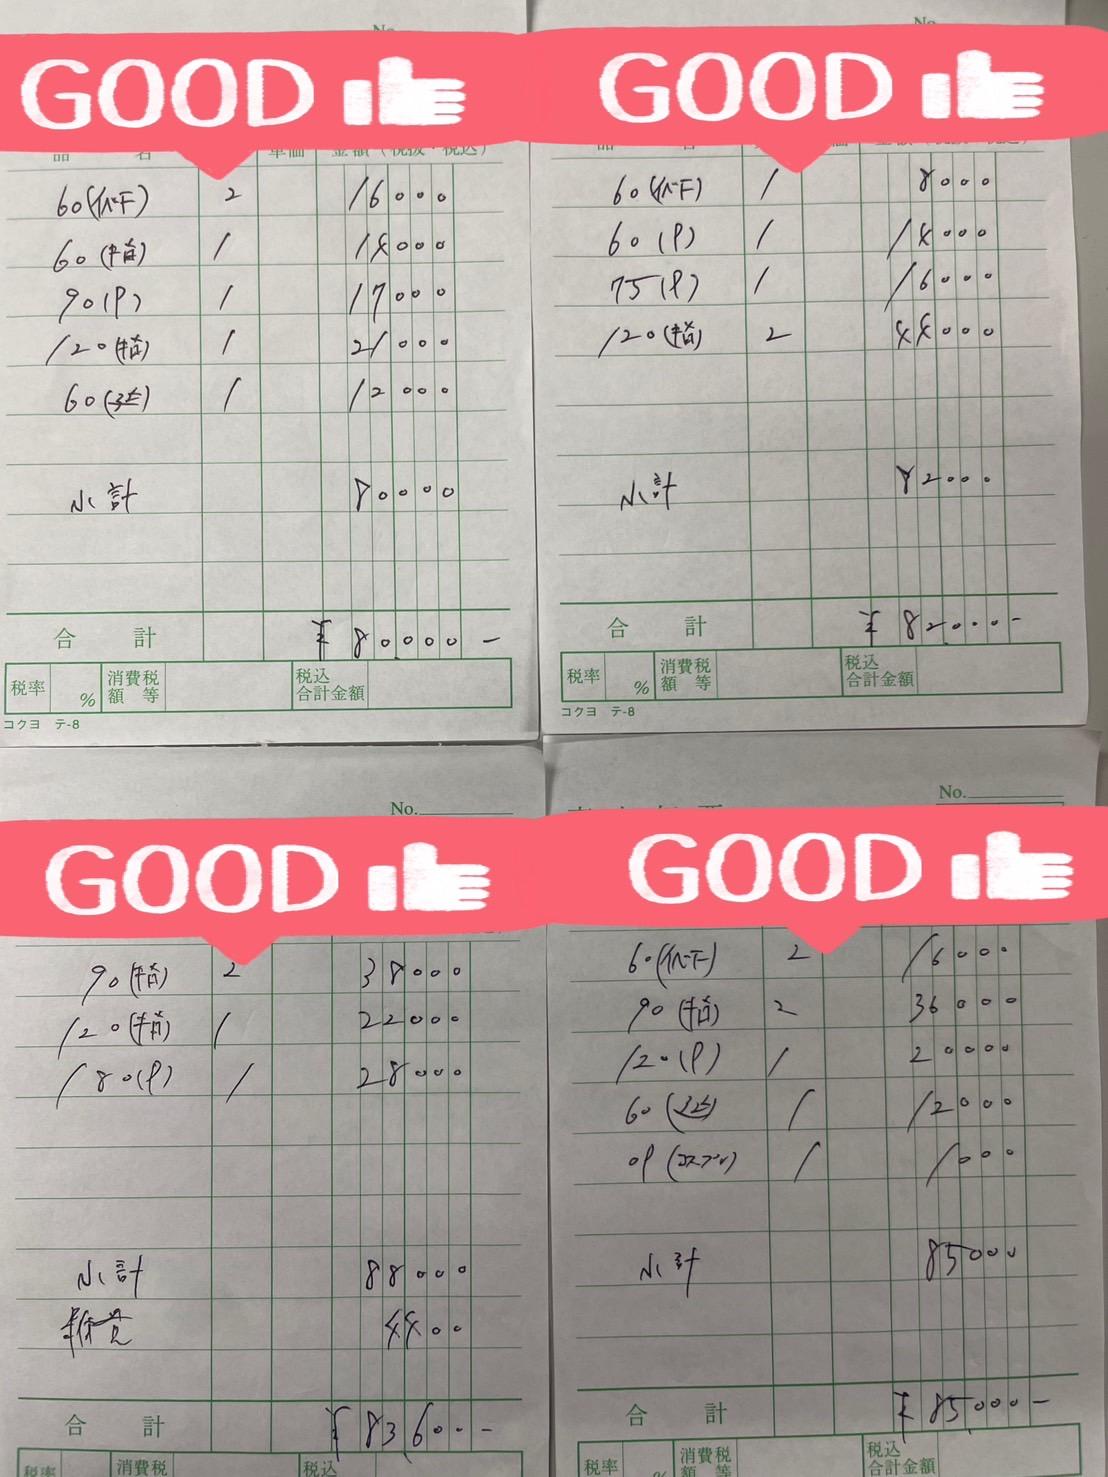 No.
GOOD
品 名 単価 金額(税抜・税込)
60(イベ下) 2 16000
60(指) 1 14000
90(P) 1 17000
120(指) 1 21000
60 1 12000
小計 80000
合 計 ¥80000-
税率 % 消費税額等 税込合計金額
コクヨ テ-8
No.
GOOD
60(イベ下) 1 8000
60(P) 1 14000
75(P) 1 16000
120(指) 2 44000
小計 82000
合 計 ¥82000-
税率 % 消費税額等 税込合計金額
コクヨ テ-8
No.
GOOD
90(指) 2 38000
120(指) 1 22000
180(P) 1 28000
小計 88000
4400
合 計 ¥83600-
税率 消費税 税込
No.
GOOD
60(イベ下) 2 16000
90(指) 2 36000
120(P) 1 20000
60 1 12000
OP(コスプレ) 1 1000
小計 85000
合 計 ¥85000-
税率 % 消費税額等 税込合計金額